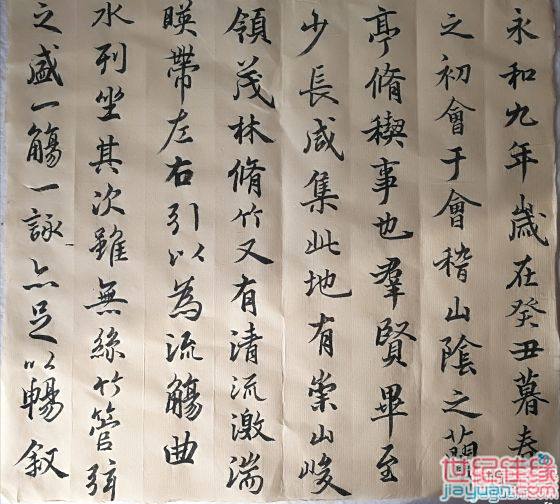 永和九年歲在癸丑暮春
之初會于會稽山陰之蘭
亭脩稧事也羣賢畢至
少長咸集此地有崇山峻
領茂林脩竹又有清流激湍
暎帶左右引以為流觴曲
水列坐其次雖無絲竹管弦
之盛一觴一詠亦足以暢叙
世纪佳缘
jiayuan.com